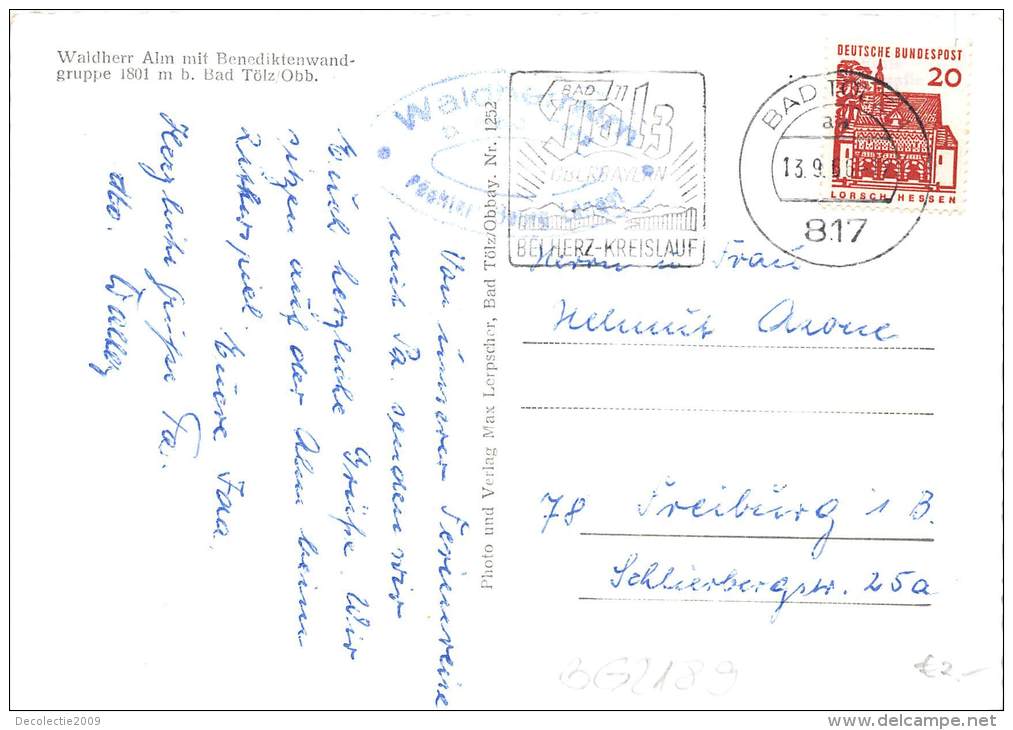 Waldherr Alm mit Benediktenwand-
gruppe 1801 m b. Bad Tölz/Obb.
Von unserer Ferienreise
mit Pa. senden wir
Euch herzliche Grüße. Wir
sitzen auf der Alm beim
Zitherspiel. Euere Ina.
Herzliche Grüße Fa.
Photo und Verlag Max Lerpscher, Bad Tölz/Obbay. Nr. 1252
BAD
Tölz
OBERBAYERN
BEI HERZ-KREISLAUF
BAD TÖLZ
13.9.6
817
DEUTSCHE BUNDESPOST
20
LORSCH HESSEN
Herrn u Frau
Helmut
78 Freiburg i B.
Schlierbergstr. 25a
BG2189
€2.-
Decolectie2009
delcampe.net